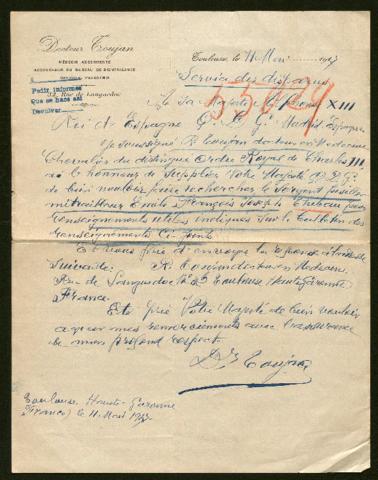 Docteur Toujan
MÉDECIN ASSERMENTÉ
ACCOUCHEUR DU BUREAU DE BIENFAISANCE
Petit informes
Que se hace así
Devolver
32, Rue de Languedoc
Toulouse, le 11 Mai 1917
Service des disparus
55024
A Sa Majesté XIII
Roi d'Espagne Q. D. G. Madrid Espagne
Je soussigné R. Toujan docteur en Médecine
Chevalier du distingué Ordre Royal de Charles III
ai l'honneur de Supplier Votre Majesté Q. D. G.
de bien vouloir faire rechercher le Sergent fusilier
mitrailleur Emile François Joseph
renseignements utiles indiqués sur le bulletin des
renseignements Ci joints
d'envoyer la réponse
Suivante: R. Toujan docteur en Médecine
Rue de Languedoc Toulouse Haute Garonne
France.
Et prie Votre Majesté de bien vouloir
agréer mes remerciements avec l'assurance
de mon profond respect.
Dr Toujan
Toulouse Haute-Garonne
(France) le 11 Mai 1917